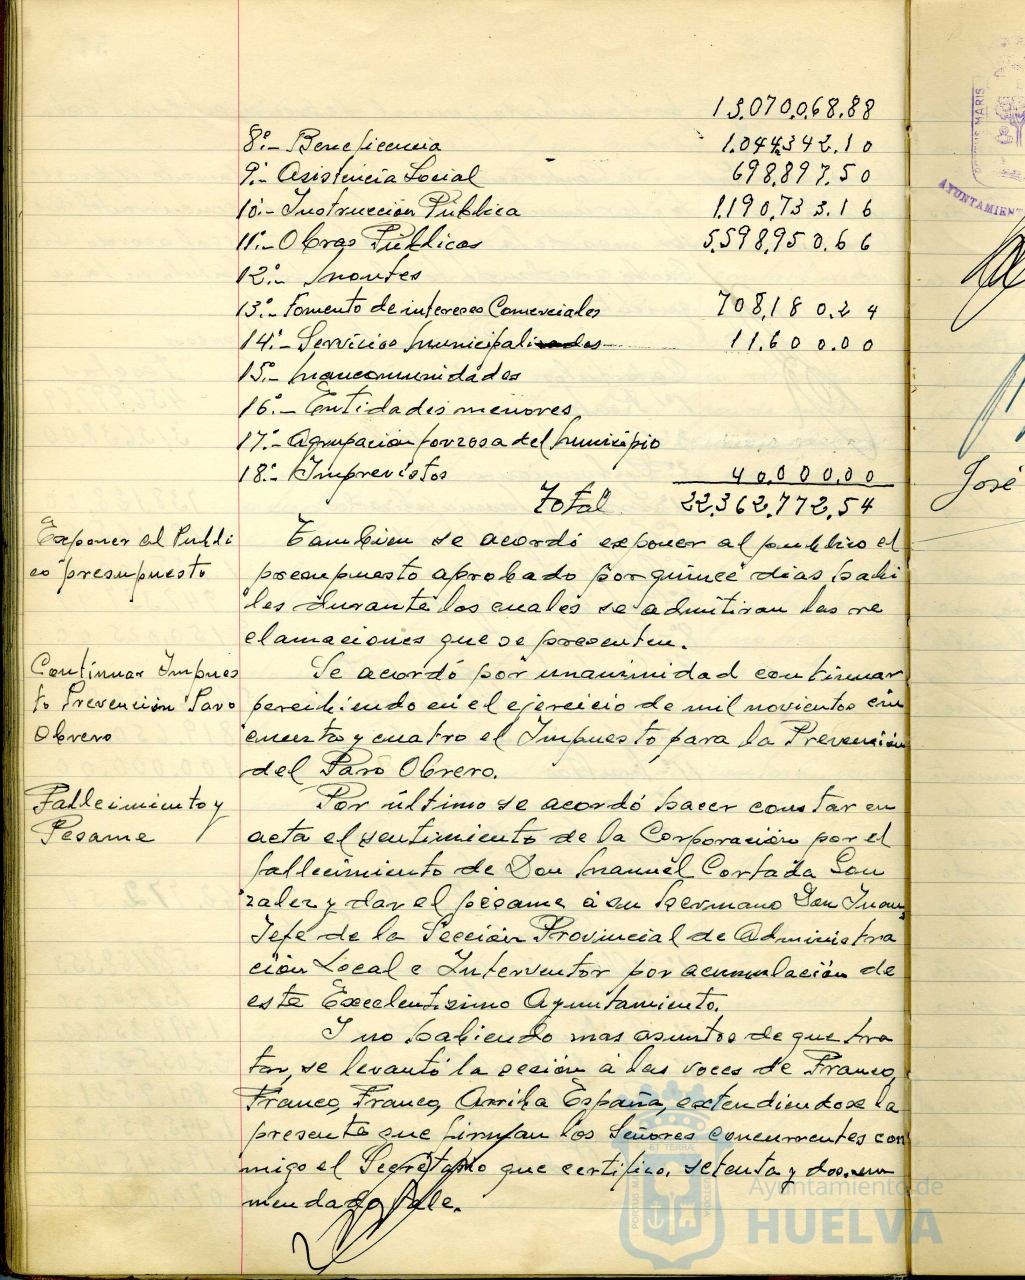 13.070.068.88
8º.- Beneficencia 1.044.342.10
9º.- Asistencia Social 698.897.50
10º.- Instrucción Pública 1.190.733.16
11º.- Obras Públicas 5.598.950.66
12º.- Montes
13º.- Fomento de intereses Comerciales 708.180.24
14º.- Servicios Municipalizados 11.600.00
15º.- Mancomunidades
16º.- Entidades menores
17º.- Agrupación forzosa del Municipio
18º.- Imprevistos 40.000.00
Total 22.362.772,54
Exponer al Publi
co presupuesto
Tambien se acordó exponer al publico el
presupuesto aprobado por quince dias habi
les durante los cuales se admitiran las re
clamaciones que se presenten.
Continuar Impues
to Prevención Paro
Obrero
Se acordó por unanimidad continuar
percibiendo en el ejercicio de mil novientos cin
cuenta y cuatro el Impuesto para la Prevención
del Paro Obrero.
Fallecimiento y
Pesame
Por último se acordó hacer constar en
acta el sentimiento de la Corporación por el
fallecimiento de Don Manuel Cortada Gon
zalez y dar el pésame á su hermano Don Juan,
Jefe de la Sección Provincial de Administra
ción Local e Interventor por acumulación de
este Excelentisimo Ayuntamiento.
Y no habiendo mas asuntos de que tra
tar, se levantó la sesión á las voces de Franco,
Franco, Franco, Arriba España, extendiendose la
presente que firman los Señores concurrentes con
migo el Secretario que certifico. setenta y dos. en
mendado Vale.
PORTUS MARIS
AYUNTAMIEN
José
PORTUS MARIS
ET TERRAE
CUSTODIA
Ayuntamiento de
HUELVA